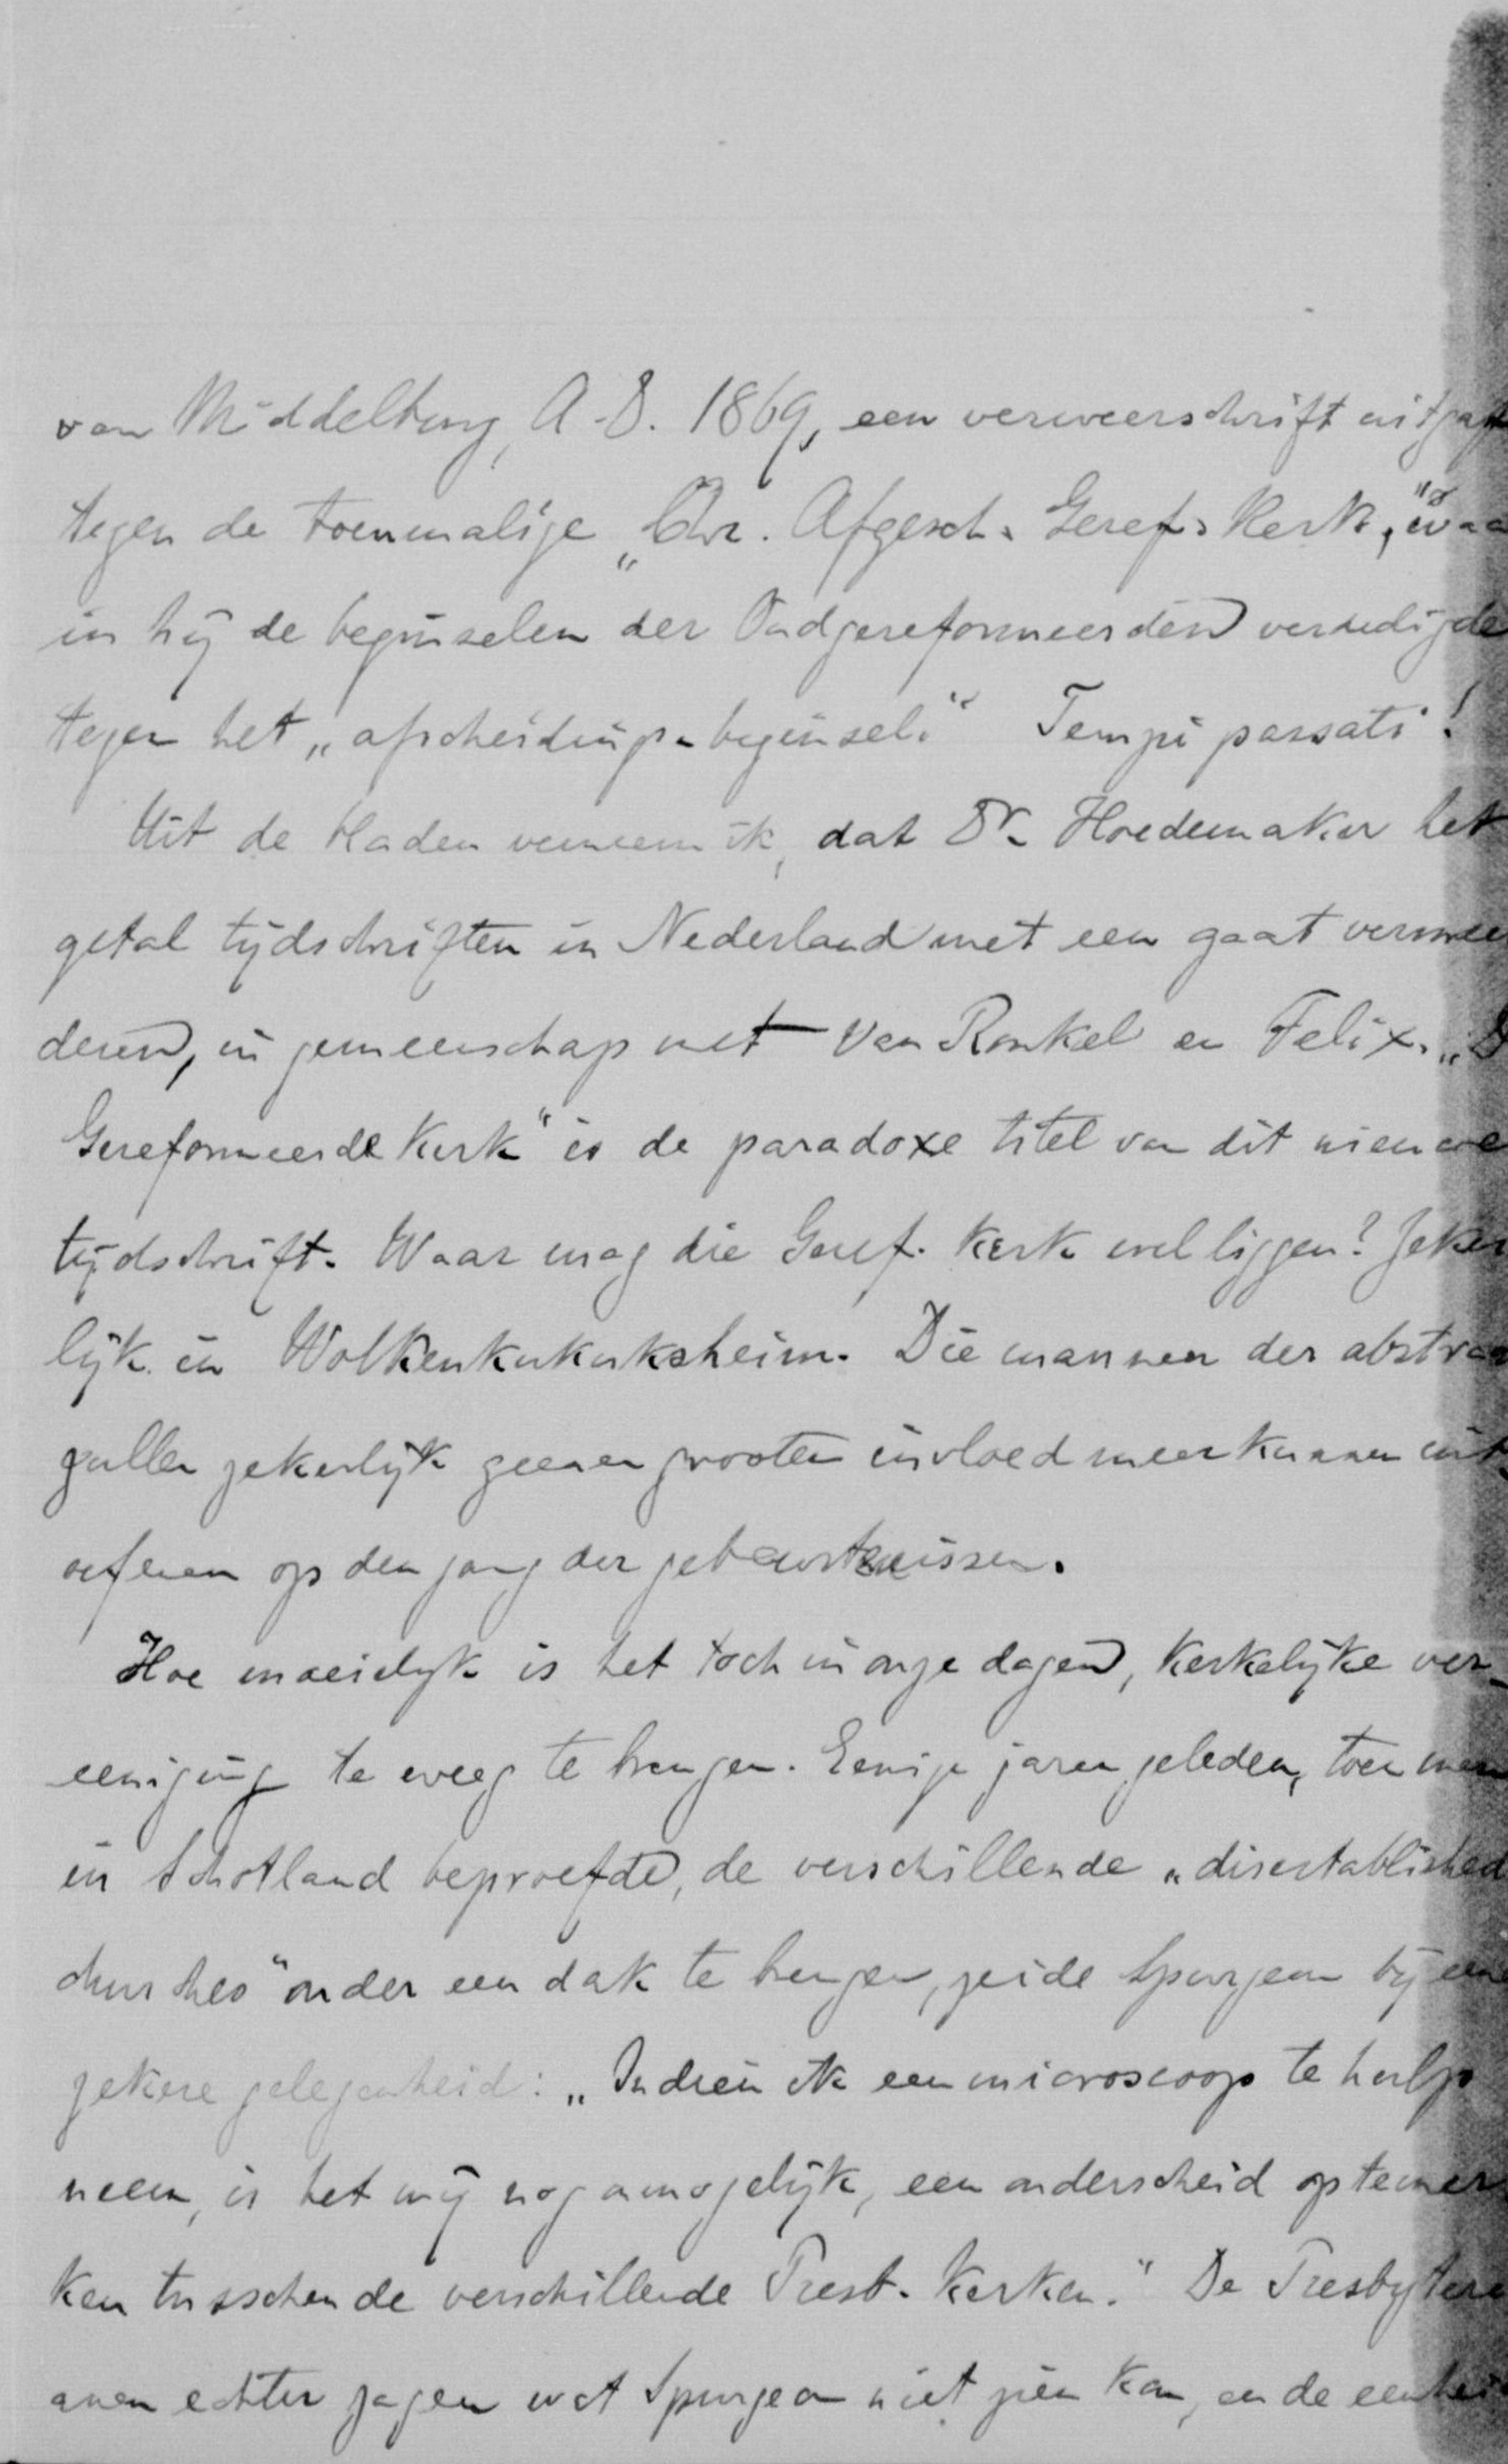 van Middelburg, A.D. 1869, een verweerschrift uitgaf
tegen de toenmalige „Chr. Afgesch. Geref. Kerk,” waar
in hij de beginselen der Oudgereformeerden verdedigde
tegen het „afscheidings-beginsel.” Tempi passati!
Uit de bladen verneem ik, dat Dr. Hoedemaker het
getal tijdschriften in Nederland met een gaat vermeer
deren, in gemeenschap met Van Ronkel en Felix. „De
Gereformeerde Kerk” is de paradoxe titel van dit nieuwe
tijdschrift. Waar mag die Geref. Kerk wel liggen? Zeker
lijk in Wolkenkukuksheim. Die mannen der
zullen zekerlijk geenen grooten invloed meer kunnen uit-
oefenen op den gang der gebeurtenissen.
Hoe moeielijk is het toch in onze dagen, kerkelijke ver-
eeniging te weeg te brengen. Eenige jaren geleden, toen men
in Schotland beproefde, de verschillende „disestablished
churches” onder een dak te brengen, zeide Spurgeon bij eene
zekere gelegenheid: „Indien ik een microscoop te hulp
neem, is het mij nog onmogelijk, een onderscheid op te mer
ken tusschen de verschillende Presb. Kerken.” De Presbyteri
anen echter zagen wat Spurgeon niet zien kon, en de eenheid